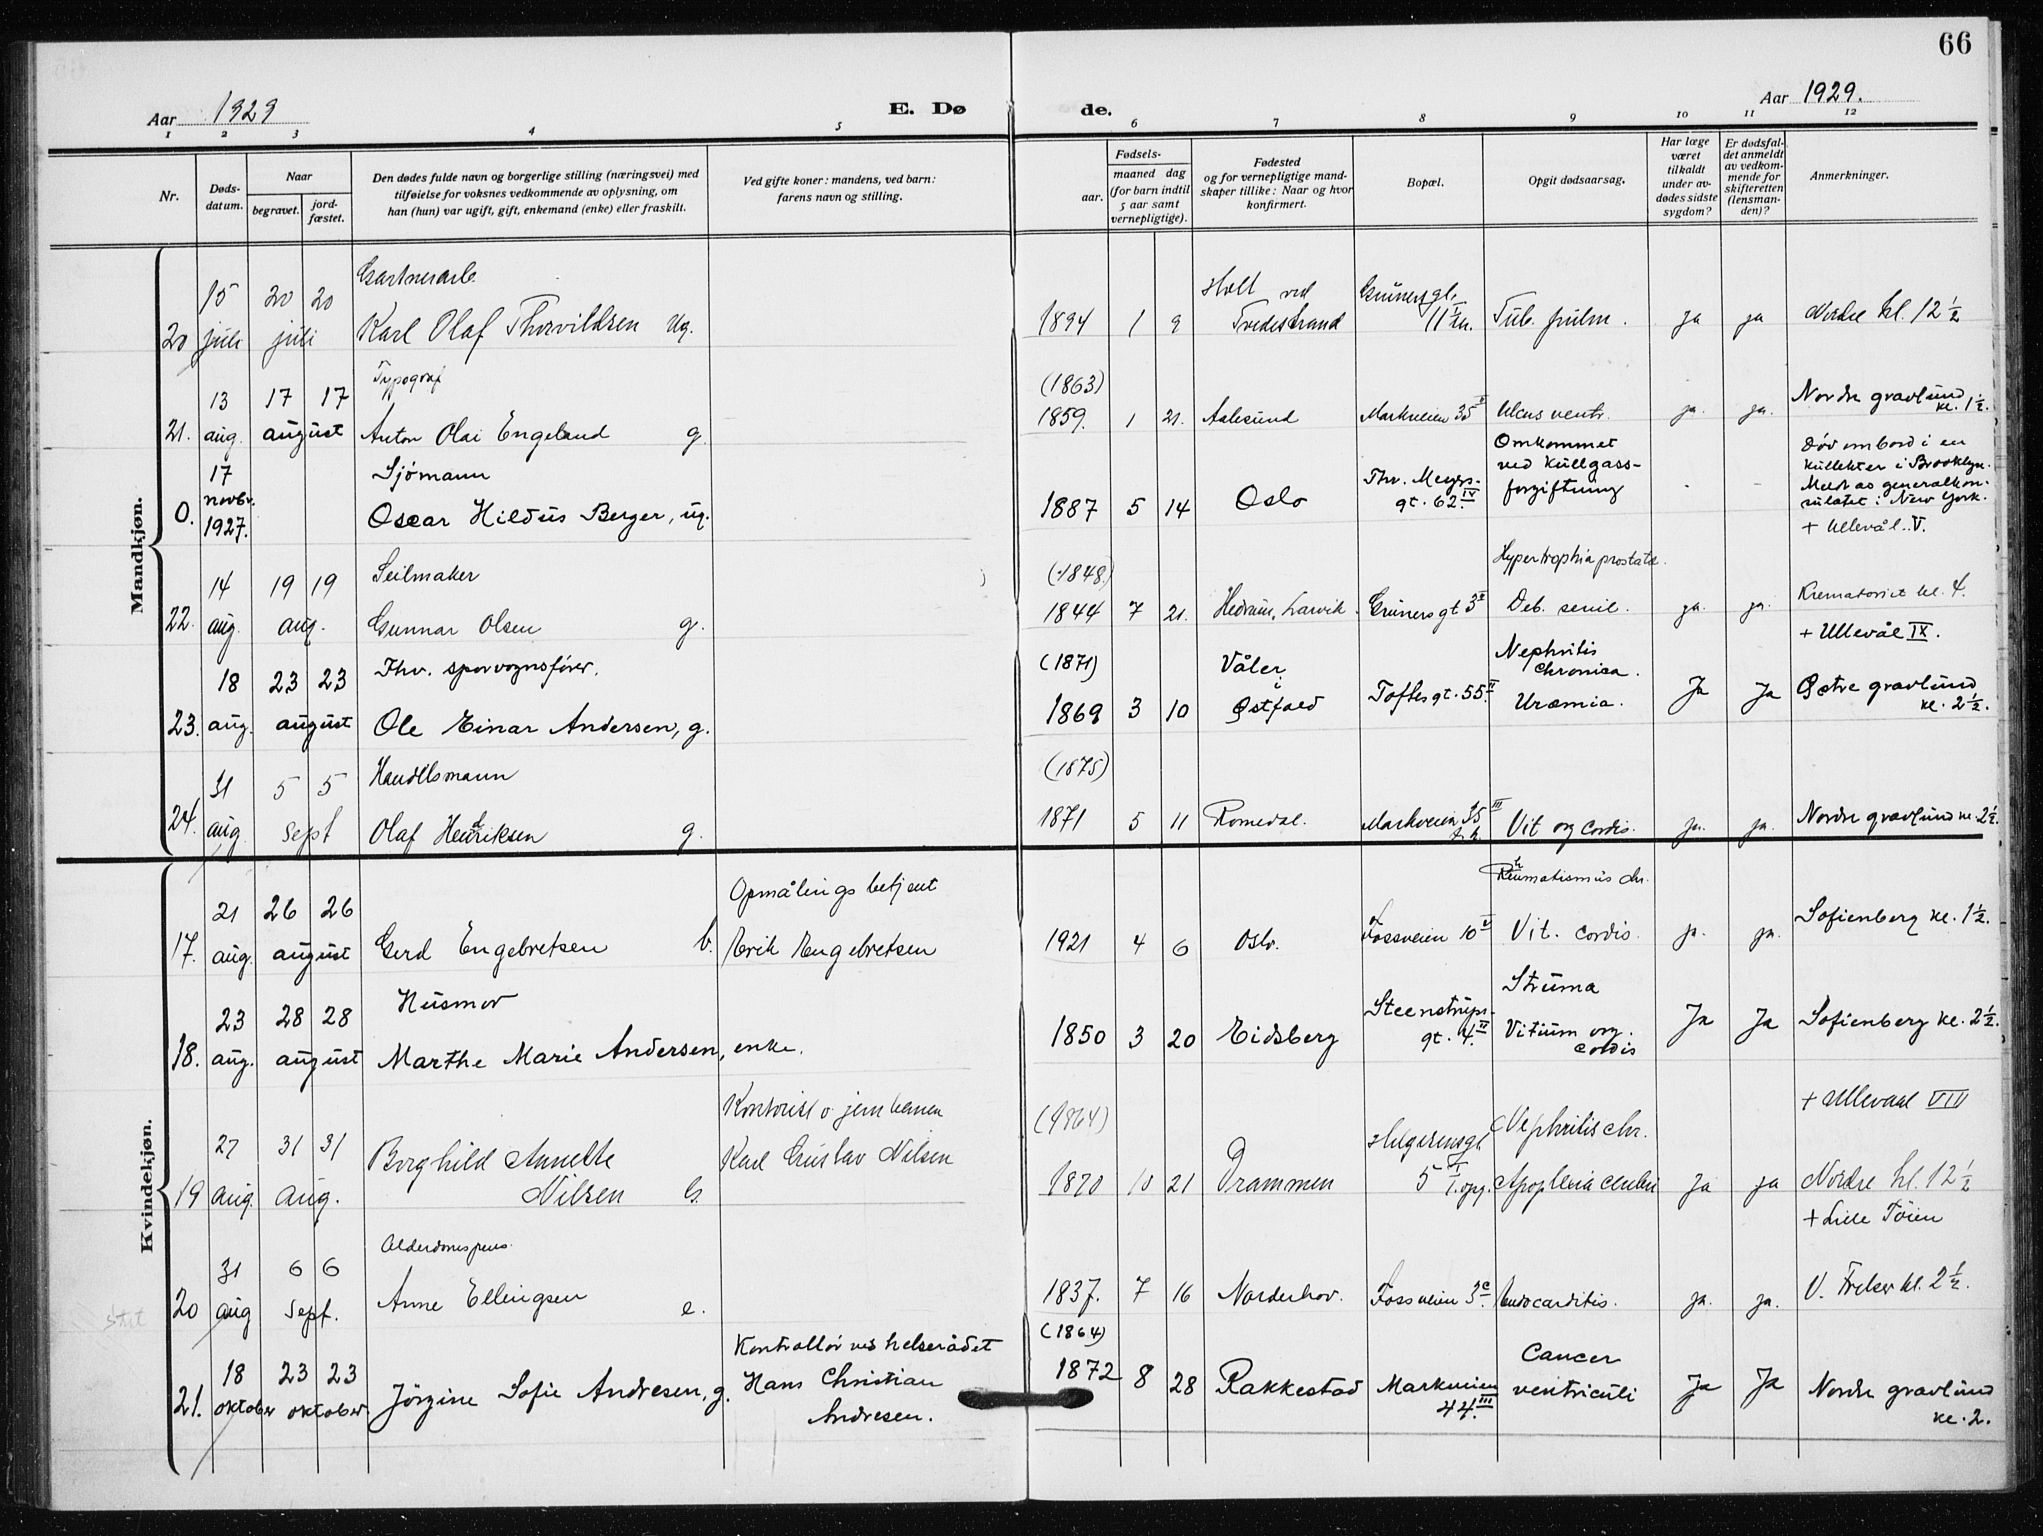 66
Aar 1929
E. Dø
de.
Aar 1929.
1 2 3 4 5 6 7 8 9 10 11 12
Nr.
Døds-
datum.
Naar
begravet.
jord-
fæstet.
Den dødes fulde navn og borgerlige stilling (næringsvei) med
tilføielse for voksnes vedkommende av oplysning, om
han (hun) var ugift, gift, enkemand (enke) eller fraskilt.
Ved gifte koner: mandens, ved barn:
farens navn og stilling.
Fødsels-
aar.
maaned dag
(for barn indtil
5 aar samt
vernepligtige).
Fødested
og for vernepligtige mand-
skaper tillike: Naar og hvor
konfirmert.
Bopæl.
Opgit dødsaarsag.
Har læge
været
tilkaldt
under av-
dødes sidste
sygdom?
Er dødsfal-
det anmeldt
av vedkom-
mende for
skifteretten
(lensman-
den)?
Anmerkninger.
Mandkjøn.
Gartnerarb.
15 20 20 Holt ved Grünersgt.
20 juli juli Karl Olaf Thorvildsen Ug. 1894 1 9 Tvedestrand 11 Tub. pulm. ja ja Nordre kl. 12 1/2
Typograf (1863)
13 17 17 Nordre gravlund
21. aug. august Anton Olai Engelund g. 1859. 1 21. Aalesund Markveien 35 V Ulcus ventr. ja. ja. kl. 1 1/2.
17 Sjömann Omkommet Död ombord i en
novbr. Thv. Meyers- ved Kullgass- kullekter i Brooklyn.
0. 1927. Oscar Hildus Berger, ug. 1887 5 14 Oslo gt. 62. IV forgiftning - - Meldt av generalkon-
sulatet i New York.
+ Ullevål. V.
Hypertrophia prostatæ.
14 19 19 Seilmaker (1848) Krematoriet kl. 4.
22. aug. aug. Gunnar Olsen g. 1844 7 21. Hedrum, Larvik. Grüners gt 3 II Deb. senil. ja. ja.
+ Ullevål IX.
Fhv. sporvognsfører. (1871) Våler Nephritis
18 23 23 i chronica.
23. aug. august Ole Einar Andersen, g. 1869 3 10 Østfold Toftes gt. 55. II Uræmia. Ja Ja Østre gravlund
kl. 2 1/2.
31 5 5 Handelsmann (1875)
24. aug. sept Olaf Henriksen g. 1871 5 11 Romedal. Markveien 35 III Vit. org cordis. ja. ja. Nordre gravlund kl. 2 1/2.
Kvindekjøn.
Opmålingsbetjent Rheumatismus chr.
21 26 26
17. aug. august Gerd Engebretsen b. Erik Engebretsen 1921 4 6 Oslo. Fossveien 10 V Vit. cordis. ja. ja. Sofienberg kl. 1 1/2.
Husmor Struma
23 28 28 Steenstrups-
18. aug. august Marthe Marie Andersen, enke. 1850 3 20 Eidsberg gt. 4. II Vitium org. Ja Ja Sofienberg kl. 2 1/2.
cordis
+ Ullevaal VIII
Kontorist v jernbanen (1864)
27 31 31 Borghild Annette Helgesensgt Nephritis chr.
19 aug. aug. Nilsen G. Karl Gustav Nilsen 1870 10 21 Drammen 5 I I. opg. Apoplexia cerebri Ja ja Nordre kl. 12 1/2
+ Lille Tøien
Alderdomspens.
31 6 6
20 aug sept. Anne Ellingsen e. 1837. 7 16 Norderhov. Fossveien 3 c. Endocarditis. ja. ja. V. Frelser kl. 2 1/2.
Kontrollör ved helserådet (1864)
18 23 23 Cancer
21. oktober oktober. Jörgine Sofie Andresen, g. Hans Christian 1872 8 28 Rakkestad Markveien ventriculi Ja Ja Nordre gravlund
Andresen. 44. III kl. 2.